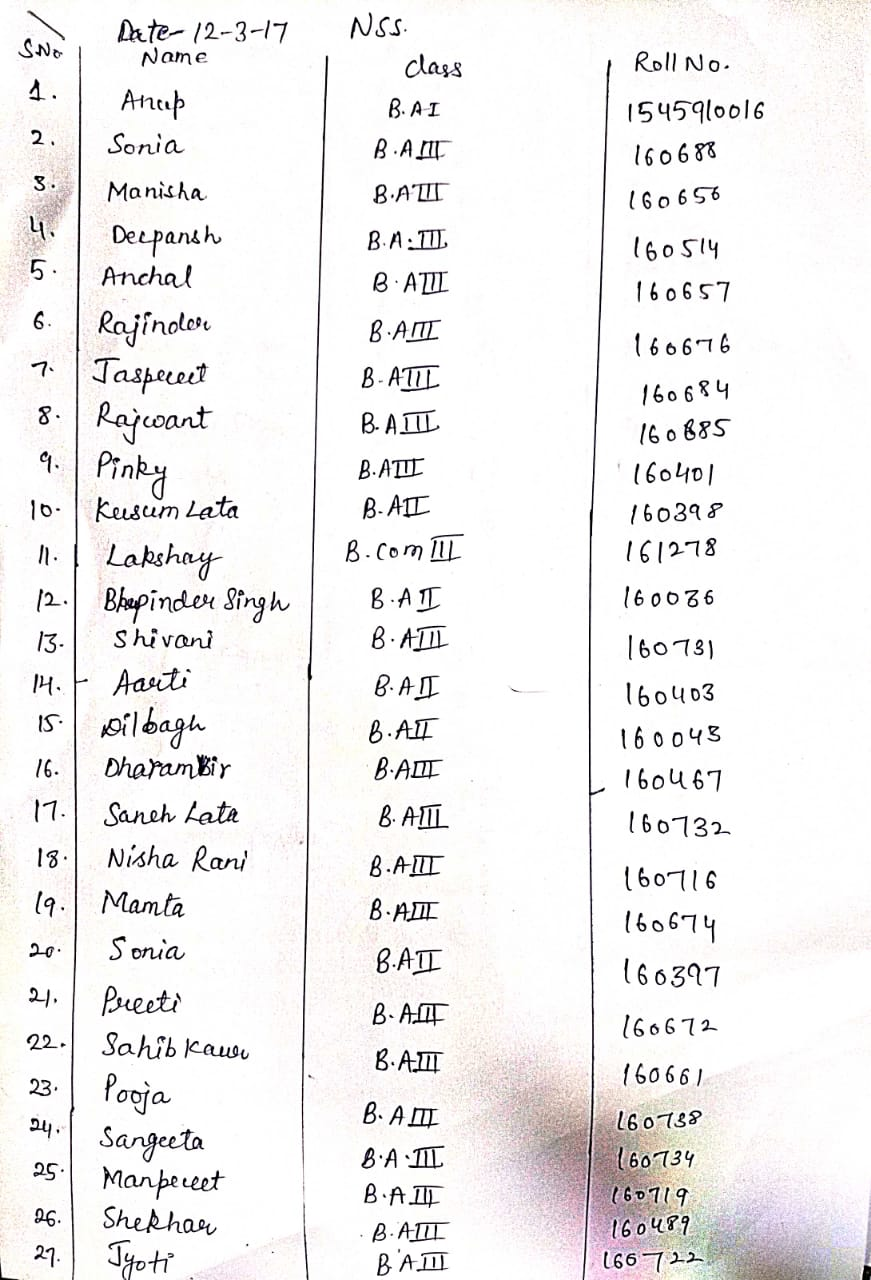 Date- 12-3-17 NSS.
S.No Name Class Roll No.
1. Anup B.A I 1545910016
2. Sonia B.A III 160688
3. Manisha B.A III 160656
4. Deepansh B.A. III 160514
5. Anchal B.A III 160657
6. Rajinder B.A III 160676
7. Jaspreet B.A III 160684
8. Rajwant B.A III 160685
9. Pinky B.A III 160401
10. Kusum Lata B.A II 160398
11. Lakshay B.Com III 161278
12. Bhupinder Singh B.A II 160036
13. Shivani B.A III 160731
14. Aarti B.A II 160403
15. Dilbagh B.A II 160043
16. Dharambir B.A III 160467
17. Saneh Lata B.A III 160732
18. Nisha Rani B.A III 160716
19. Mamta B.A III 160674
20. Sonia B.A II 160397
21. Preeti B.A III 160672
22. Sahib Kaur B.A III 160661
23. Pooja B.A III 160738
24. Sangeeta B.A. III 160734
25. Manpreet B.A III 160719
26. Shekhar B.A III 160489
27. Jyoti B.A III 160722